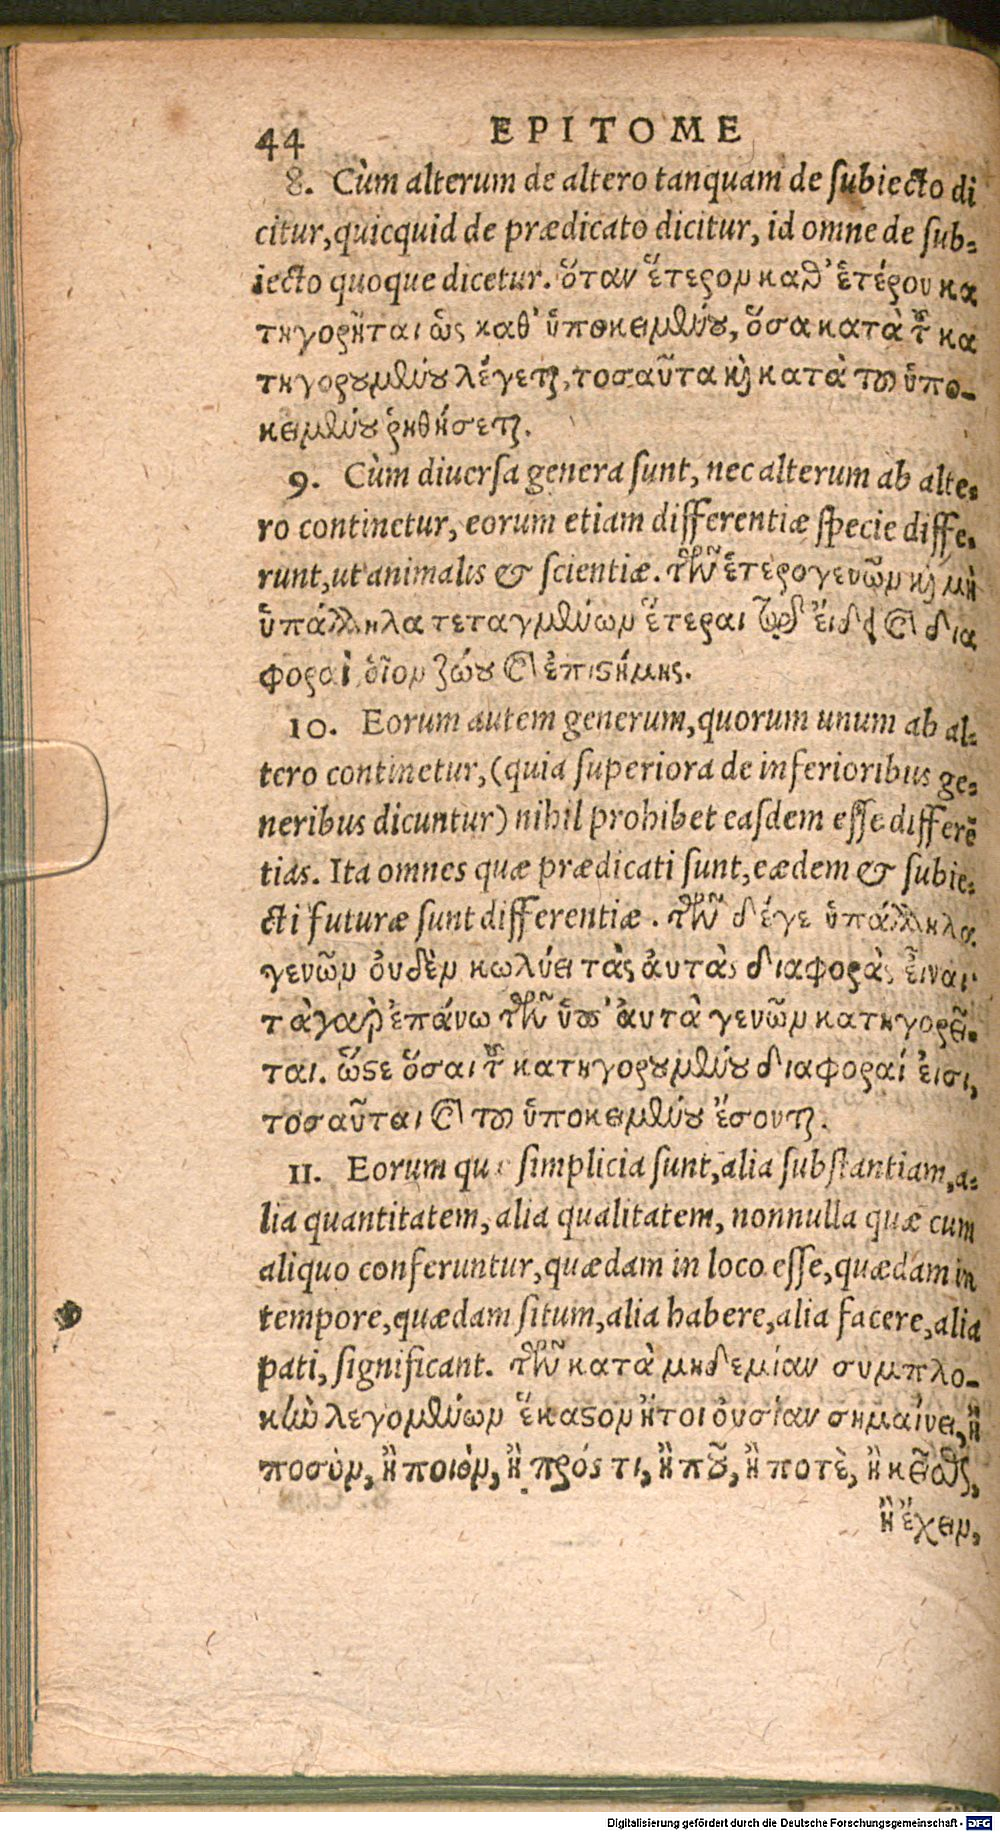 44 EPITOME
8. Cùm alterum de altero tanquam de subiecto di
citur, quicquid de prædicato dicitur, id omne de sub-
iecto quoque dicetur. ὅταν ἕτερον καθ' ἑτέρου κα
τηγορῆται ὡς καθ' ὑποκειμένου, ὅσα κατὰ τοῦ κα
τηγορουμένου λέγεται, τοσαῦτα καὶ κατὰ τοῦ ὑπο-
κειμένου ῥηθήσεται.
9. Cùm diuersa genera sunt, nec alterum ab alte-
ro continetur, eorum etiam differentiæ specie diffe-
runt, ut animalis & scientiæ. τῶν ἑτερογενῶν καὶ μὴ
ὑπάλληλα τεταγμένων ἕτεραι τῷ εἴδει καὶ αἱ δια
φοραὶ, οἷον ζώου καὶ ἐπιστήμης.
10. Eorum autem generum, quorum unum ab al-
tero continetur, (quia superiora de inferioribus ge-
neribus dicuntur) nihil prohibet easdem esse differẽ
tias. Ita omnes quæ prædicati sunt, eædem & subie-
cti futuræ sunt differentiæ. τῶν δέ γε ὑπάλληλα
γενῶν οὐδὲν κωλύει τὰς αὐτὰς διαφορὰς εἶναι·
τὰ γὰρ ἐπάνω τῶν ὑπ' αὐτὰ γενῶν κατηγορεῖ-
ται. ὥστε ὅσαι τοῦ κατηγορουμένου διαφοραί εἰσι,
τοσαῦται καὶ τοῦ ὑποκειμένου ἔσονται.
11. Eorum quæ simplicia sunt, alia substantiam, a-
lia quantitatem, alia qualitatem, nonnulla quæ cum
aliquo conferuntur, quædam in loco esse, quædam in
tempore, quædam situm, alia habere, alia facere, alia
pati, significant. τῶν κατὰ μηδεμίαν συμπλο-
κὴν λεγομένων ἕκαστον ἤτοι οὐσίαν σημαίνει, ἢ
ποσὸν, ἢ ποιὸν, ἢ πρός τι, ἢ ποῦ, ἢ ποτὲ, ἢ κεῖσθαι,
ἢ ἔχειν,
Digitalisierung gefördert durch die Deutsche Forschungsgemeinschaft - DFG